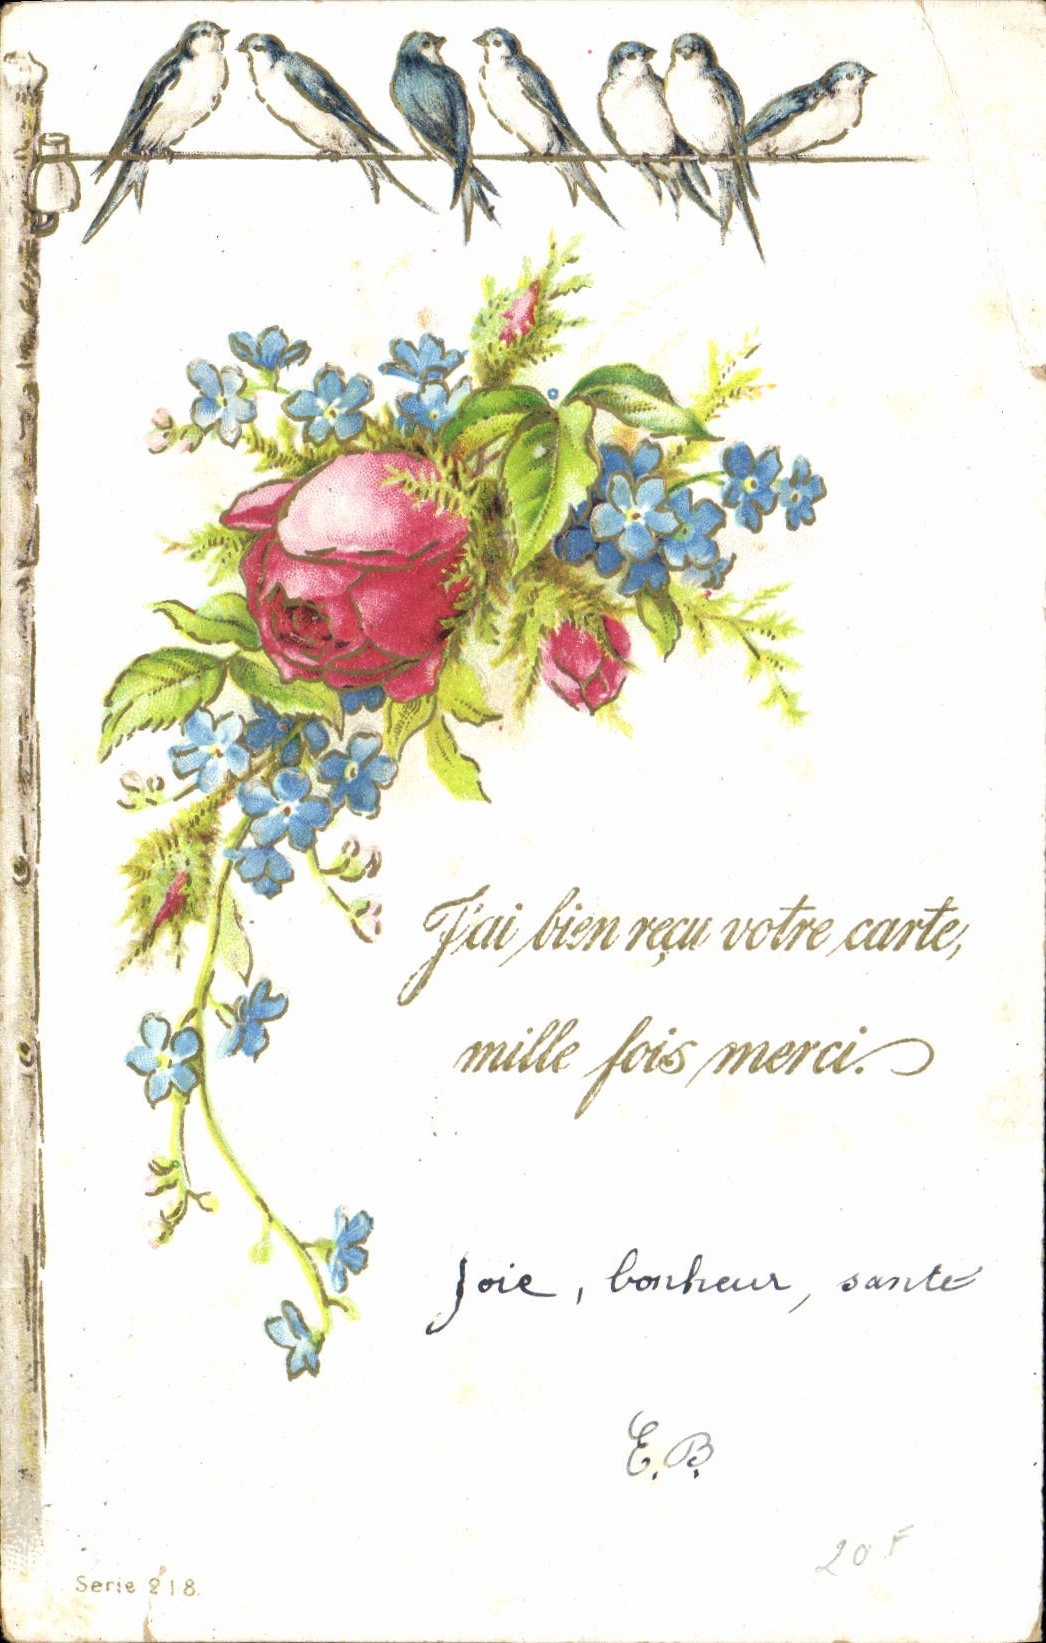 J'ai bien reçu votre carte,
mille fois merci.
Joie, bonheur, santé
E. B.
20 F
Serie 218.